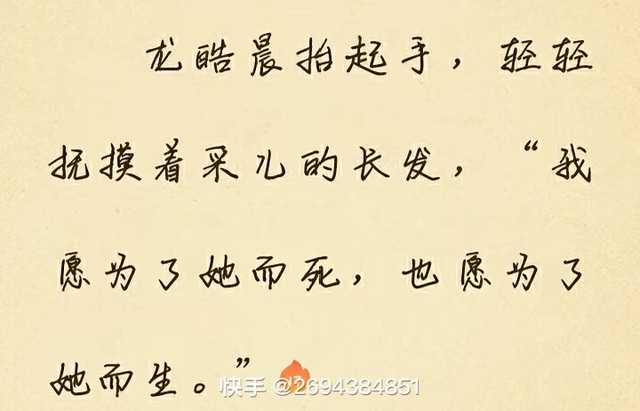 龙皓晨抬起手，轻轻
抚摸着采儿的长发，“我
愿为了她而死，也愿为了
她而生。”
快手 @2694384851